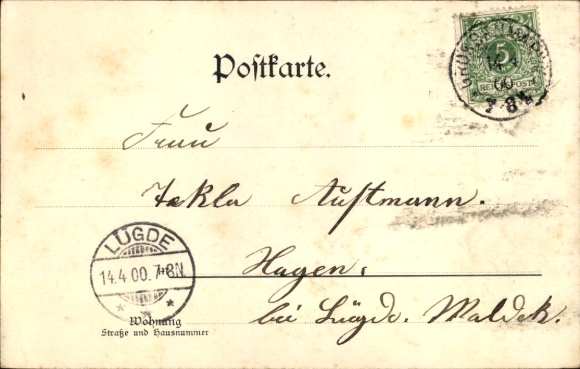 Postkarte.
5
REICHSPOST
14.4
00
7-8N
Frau
Tekla Austmann.
LÜGDE
14.4.00.7-8N.
Hagen,
bei Lügde. Waldek.
Wohnung
Straße und Hausnummer